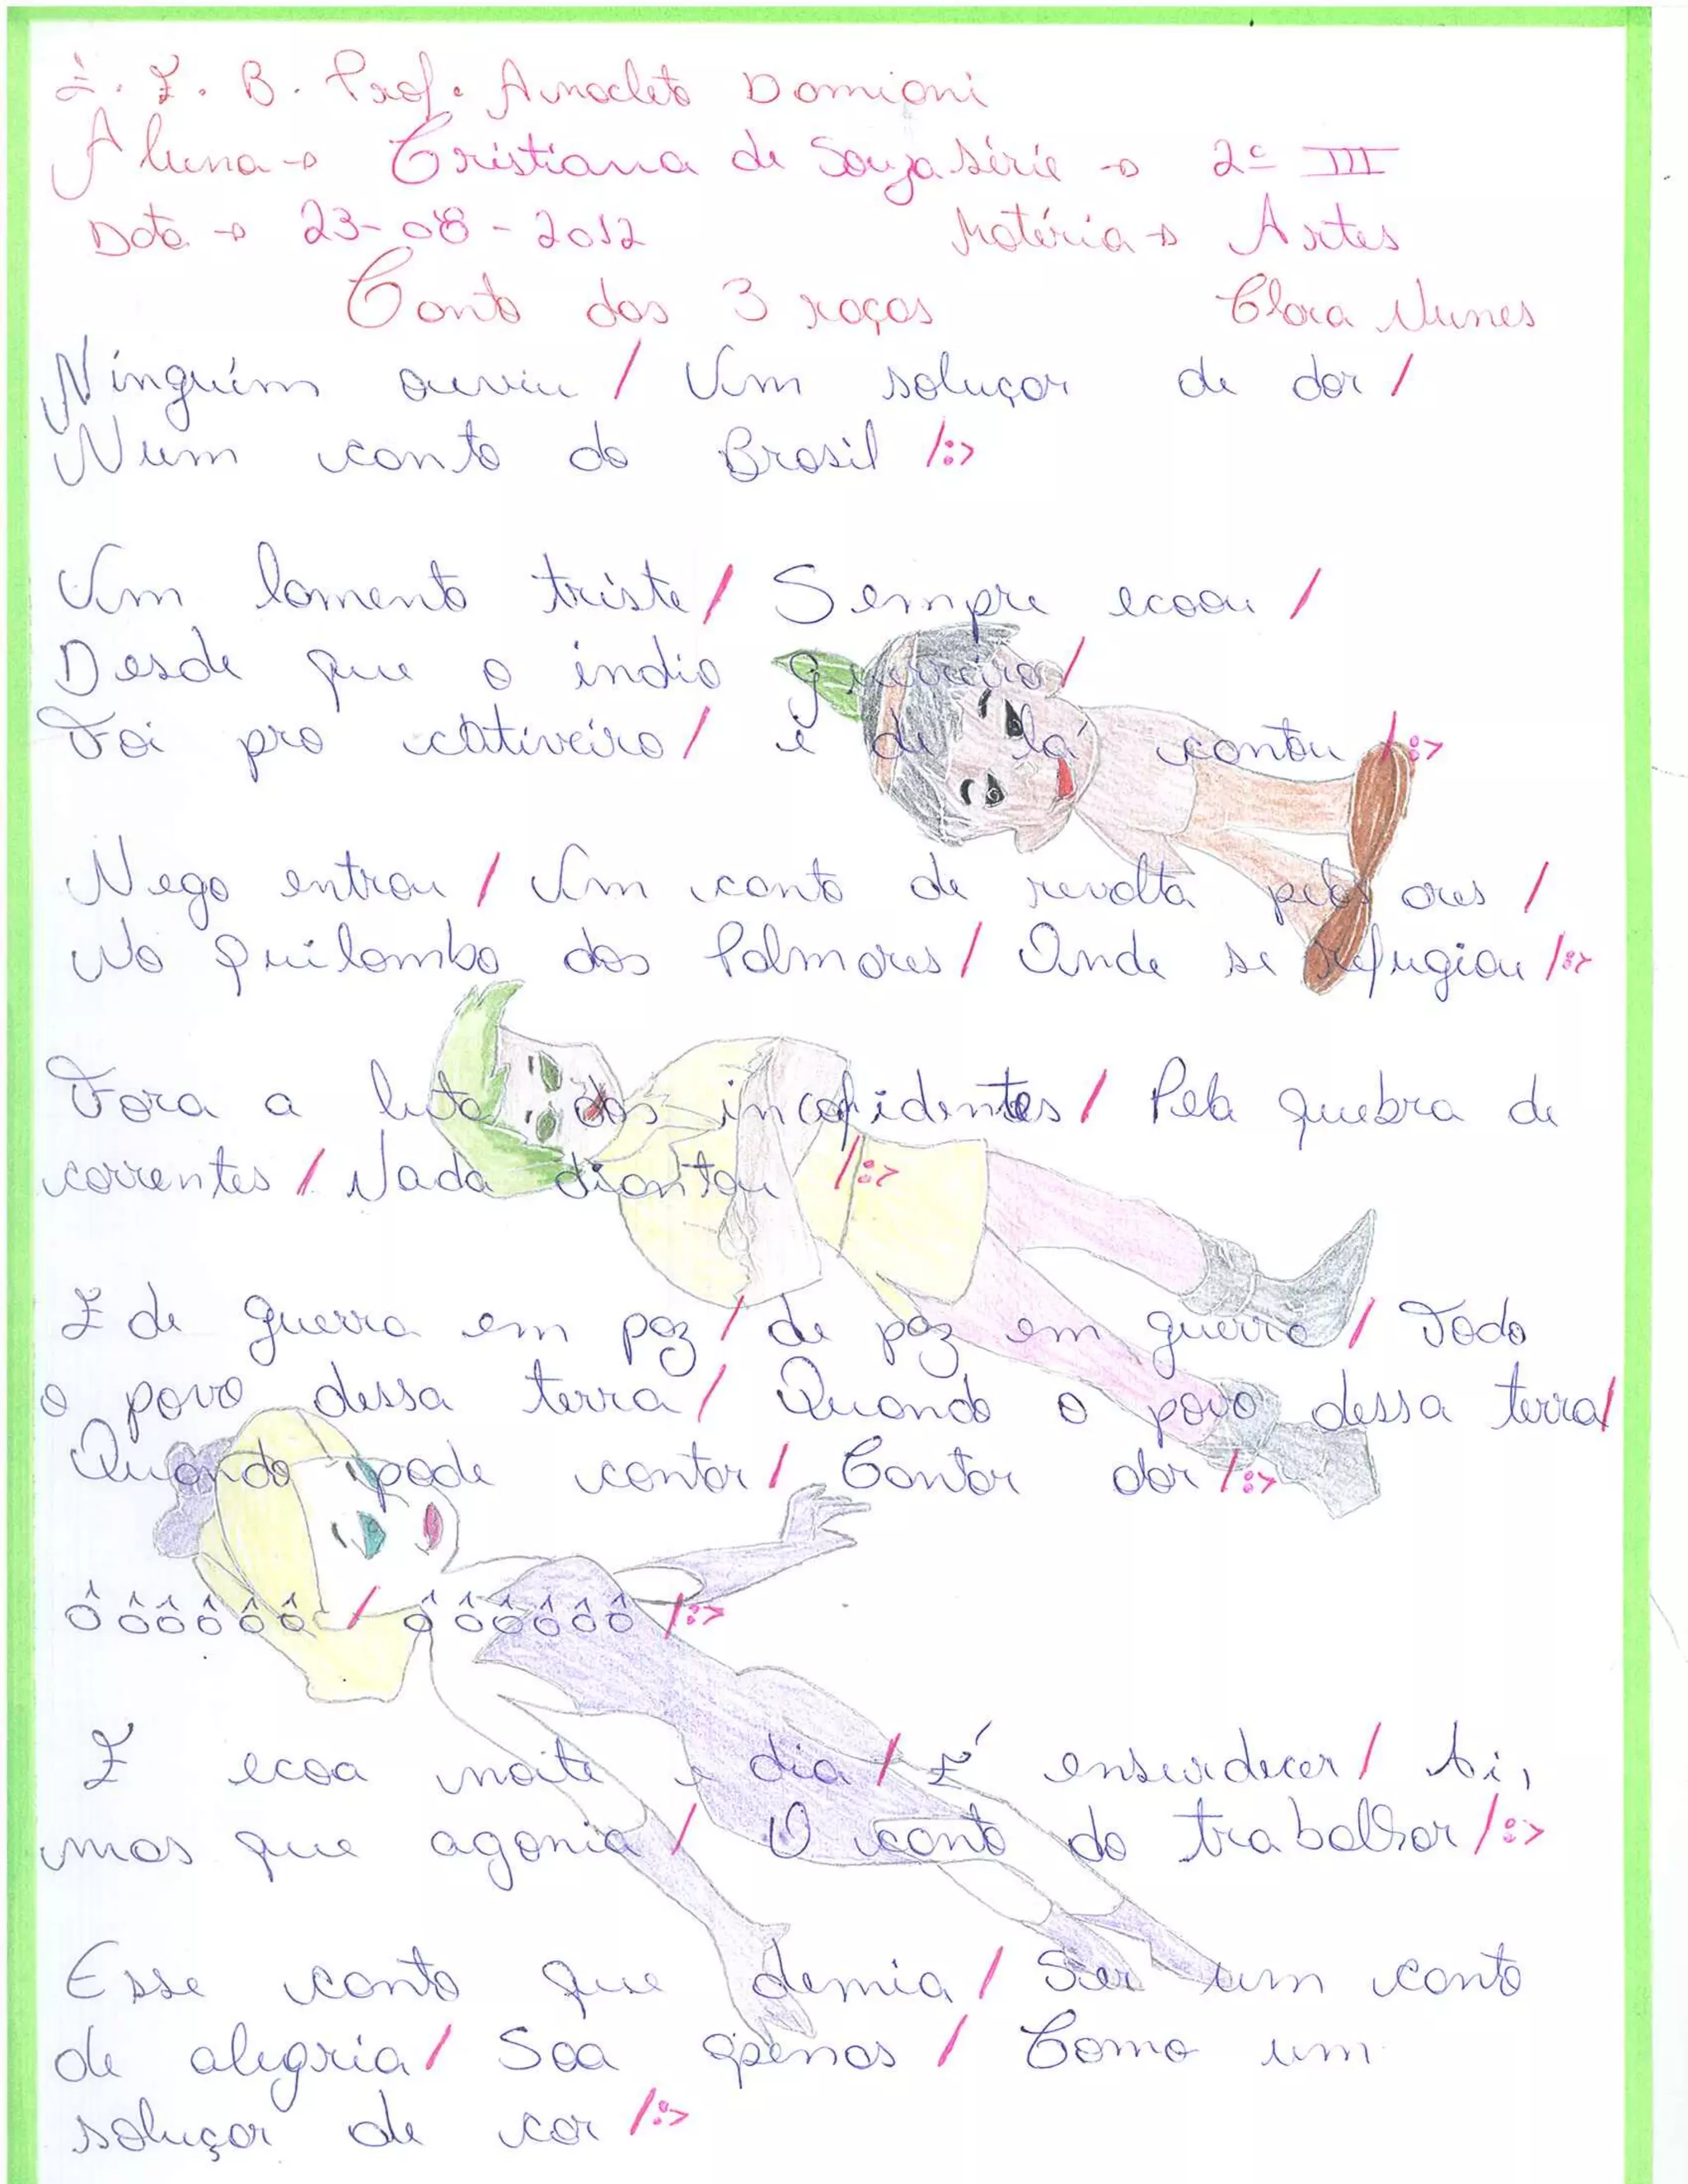 E. E. B. Prof. Anacleto Damiani
Aluna → Cristiana de Souza Série → 2º III
Data → 23-08-2012 Matéria → Artes
Canto das 3 raças Clara Nunes
Ninguém ouviu / Um soluçar de dor /
Num canto do Brasil /:>
Um lamento triste / Sempre ecoou /
Desde que o índio guerreiro /
Foi pro cativeiro / e de lá cantou /:>
Nego entrou / Um canto de revolta pelos ares /
No Quilombo dos Palmares / Onde se refugiou /:>
Fora a luta dos inconfidentes / Pela quebra de
correntes / Nada diantou /:>
E de guerra em paz / de paz em guerra / Todo
o povo dessa terra / Quando o povo dessa terra /
Quando pode cantar / Cantar dor /:>
ô ô ô ô ô ô / ô ô ô ô ô ô /:>
E ecoa noite e dia / É ensurdecer / Ai,
mas que agonia / O canto do trabalhar /:>
Esse canto que demia / Ser um canto
de alegria / Soa apenas / Como um
soluçar de cor /:>